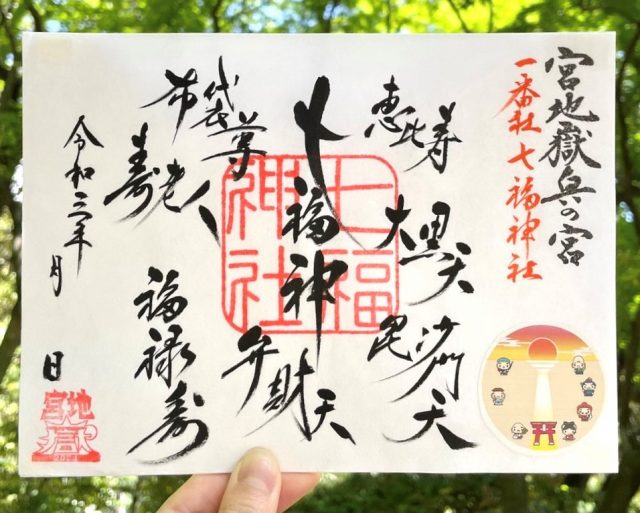 宮地嶽奥の宮
一番社七福神社
恵比寿
大黒天
毘沙門天
七福神
弁財天
七福
神社
布袋尊
壽老人
福禄壽
令和三年 月 日
宮地
嶽
2021